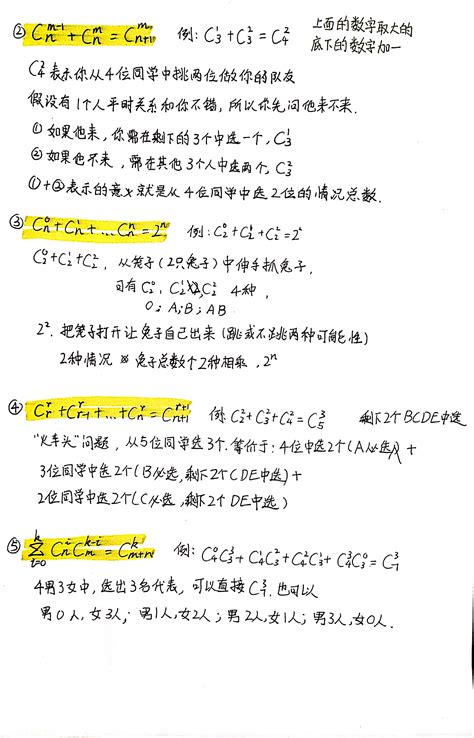 ② C_n^{m-1} + C_n^m = C_{n+1}^m 例: C_3^1 + C_3^2 = C_4^2 上面的数字取大的
底下的数字加一
C_4^2 表示你从4位同学中挑两位做你的队友
假设有1个人平时关系和你不错, 所以你先问他来不来.
① 如果他来, 你需在剩下的3个中选一个, C_3^1
② 如果他不来, 需在其他3个人中选两个, C_3^2
①+②表示的意义就是从4位同学中选2位的情况总数.
③ C_n^0 + C_n^1 + ... C_n^n = 2^n 例: C_2^0 + C_2^1 + C_2^2 = 2^2
C_2^0 + C_2^1 + C_2^2, 从笼子(2只兔子)中伸手抓兔子,
可有 C_2^0, C_2^1, C_2^2 4种,
0; A; B; AB
2^2. 把笼子打开让兔子自己出来(跳或不跳两种可能性)
2种情况 兔子总数个2种相乘, 2^n
④ C_r^r + C_{r+1}^r + ... + C_n^r = C_{n+1}^{r+1} 例 C_2^2 + C_3^2 + C_4^2 = C_5^3 剩下2个BCDE中选
"火车头"问题, 从5位同学选3个. 等价于: 4位中选2个(A必选) +
3位同学中选2个(B必选, 剩下2个CDE中选) +
2位同学中选2个(C必选, 剩下2个DE中选)
⑤ \sum_{i=0}^k C_n^i C_m^{k-i} = C_{m+n}^k 例: C_4^0 C_3^3 + C_4^1 C_3^2 + C_4^2 C_3^1 + C_4^3 C_3^0 = C_7^3
4男3女中, 选出3名代表, 可以直接 C_7^3. 也可以
男0人, 女3人; 男1人, 女2人; 男2人, 女1人; 男3人, 女0人.